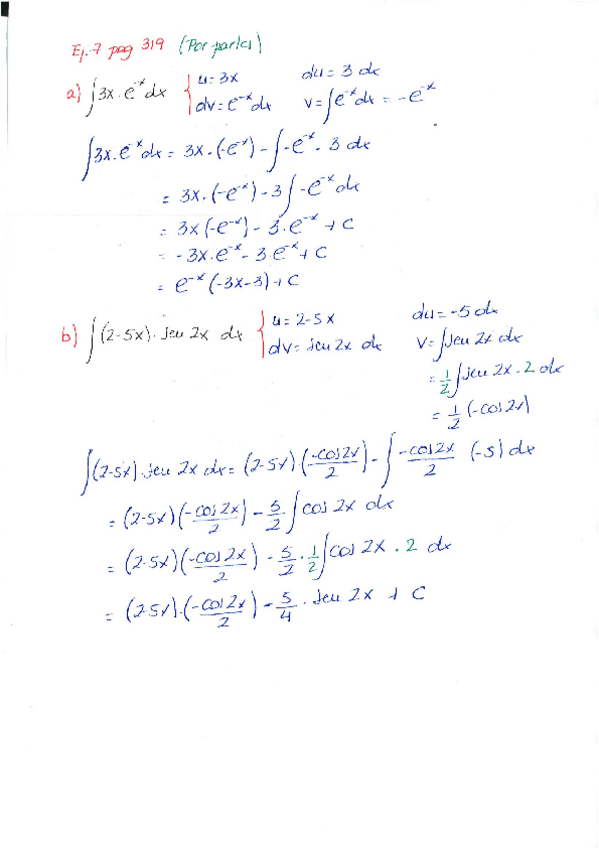 Ej.7 pag 319 (Por partes)
a) ∫3x·e⁻ˣdx { u=3x du=3 dx
dv=e⁻ˣdx v=∫e⁻ˣdx = -e⁻ˣ
∫3x·e⁻ˣdx = 3x·(-e⁻ˣ) - ∫-e⁻ˣ·3 dx
= 3x·(-e⁻ˣ) - 3∫-e⁻ˣdx
= 3x(-e⁻ˣ) - 3·e⁻ˣ + C
= -3x·e⁻ˣ - 3·e⁻ˣ + C
= e⁻ˣ(-3x-3)+C
b) ∫(2-5x)·sen 2x dx { u=2-5x du=-5dx
dv=sen 2x dx v=∫sen 2x dx
= 1/2 ∫sen 2x·2 dx
= 1/2 (-cos 2x)
∫(2-5x)·sen 2x dx = (2-5x)·(-cos2x/2) - ∫-cos2x/2 (-5) dx
= (2-5x)(-cos2x/2) - 5/2 ∫cos 2x dx
= (2-5x)(-cos2x/2) - 5/2·1/2∫cos 2x·2 dx
= (2-5x)·(-cos2x/2) - 5/4·sen 2x + C